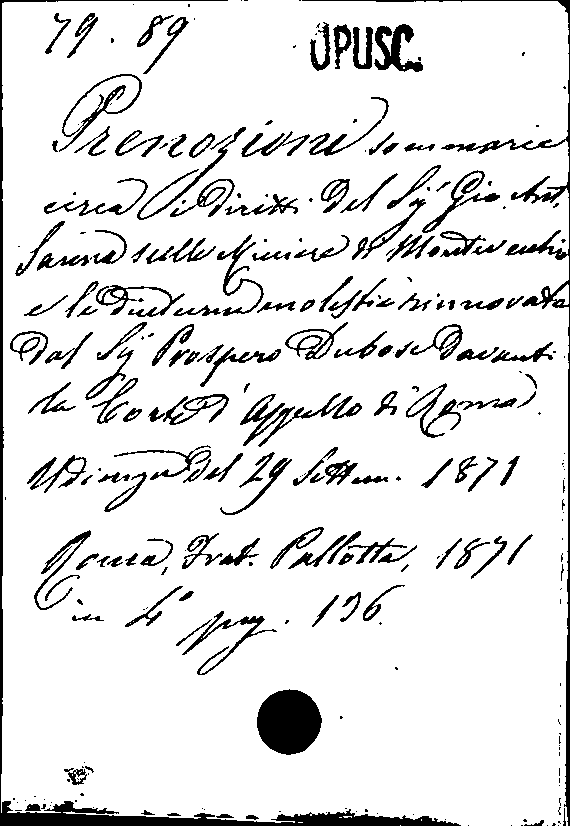 79. 89 OPUSC.
Prenozioni sommarie
circa i diritti del Sigr Gio. Ant.
Sanna sulle Miniere di Montevecchio
e le diuturne molestie rinnovate
dal Sigr Prospero Dubosc davanti
la Corte d'Appello di Roma
Udienza del 29 Settem. 1871
Roma, Frat. Pallotta, 1871
in 4° pag. 136.